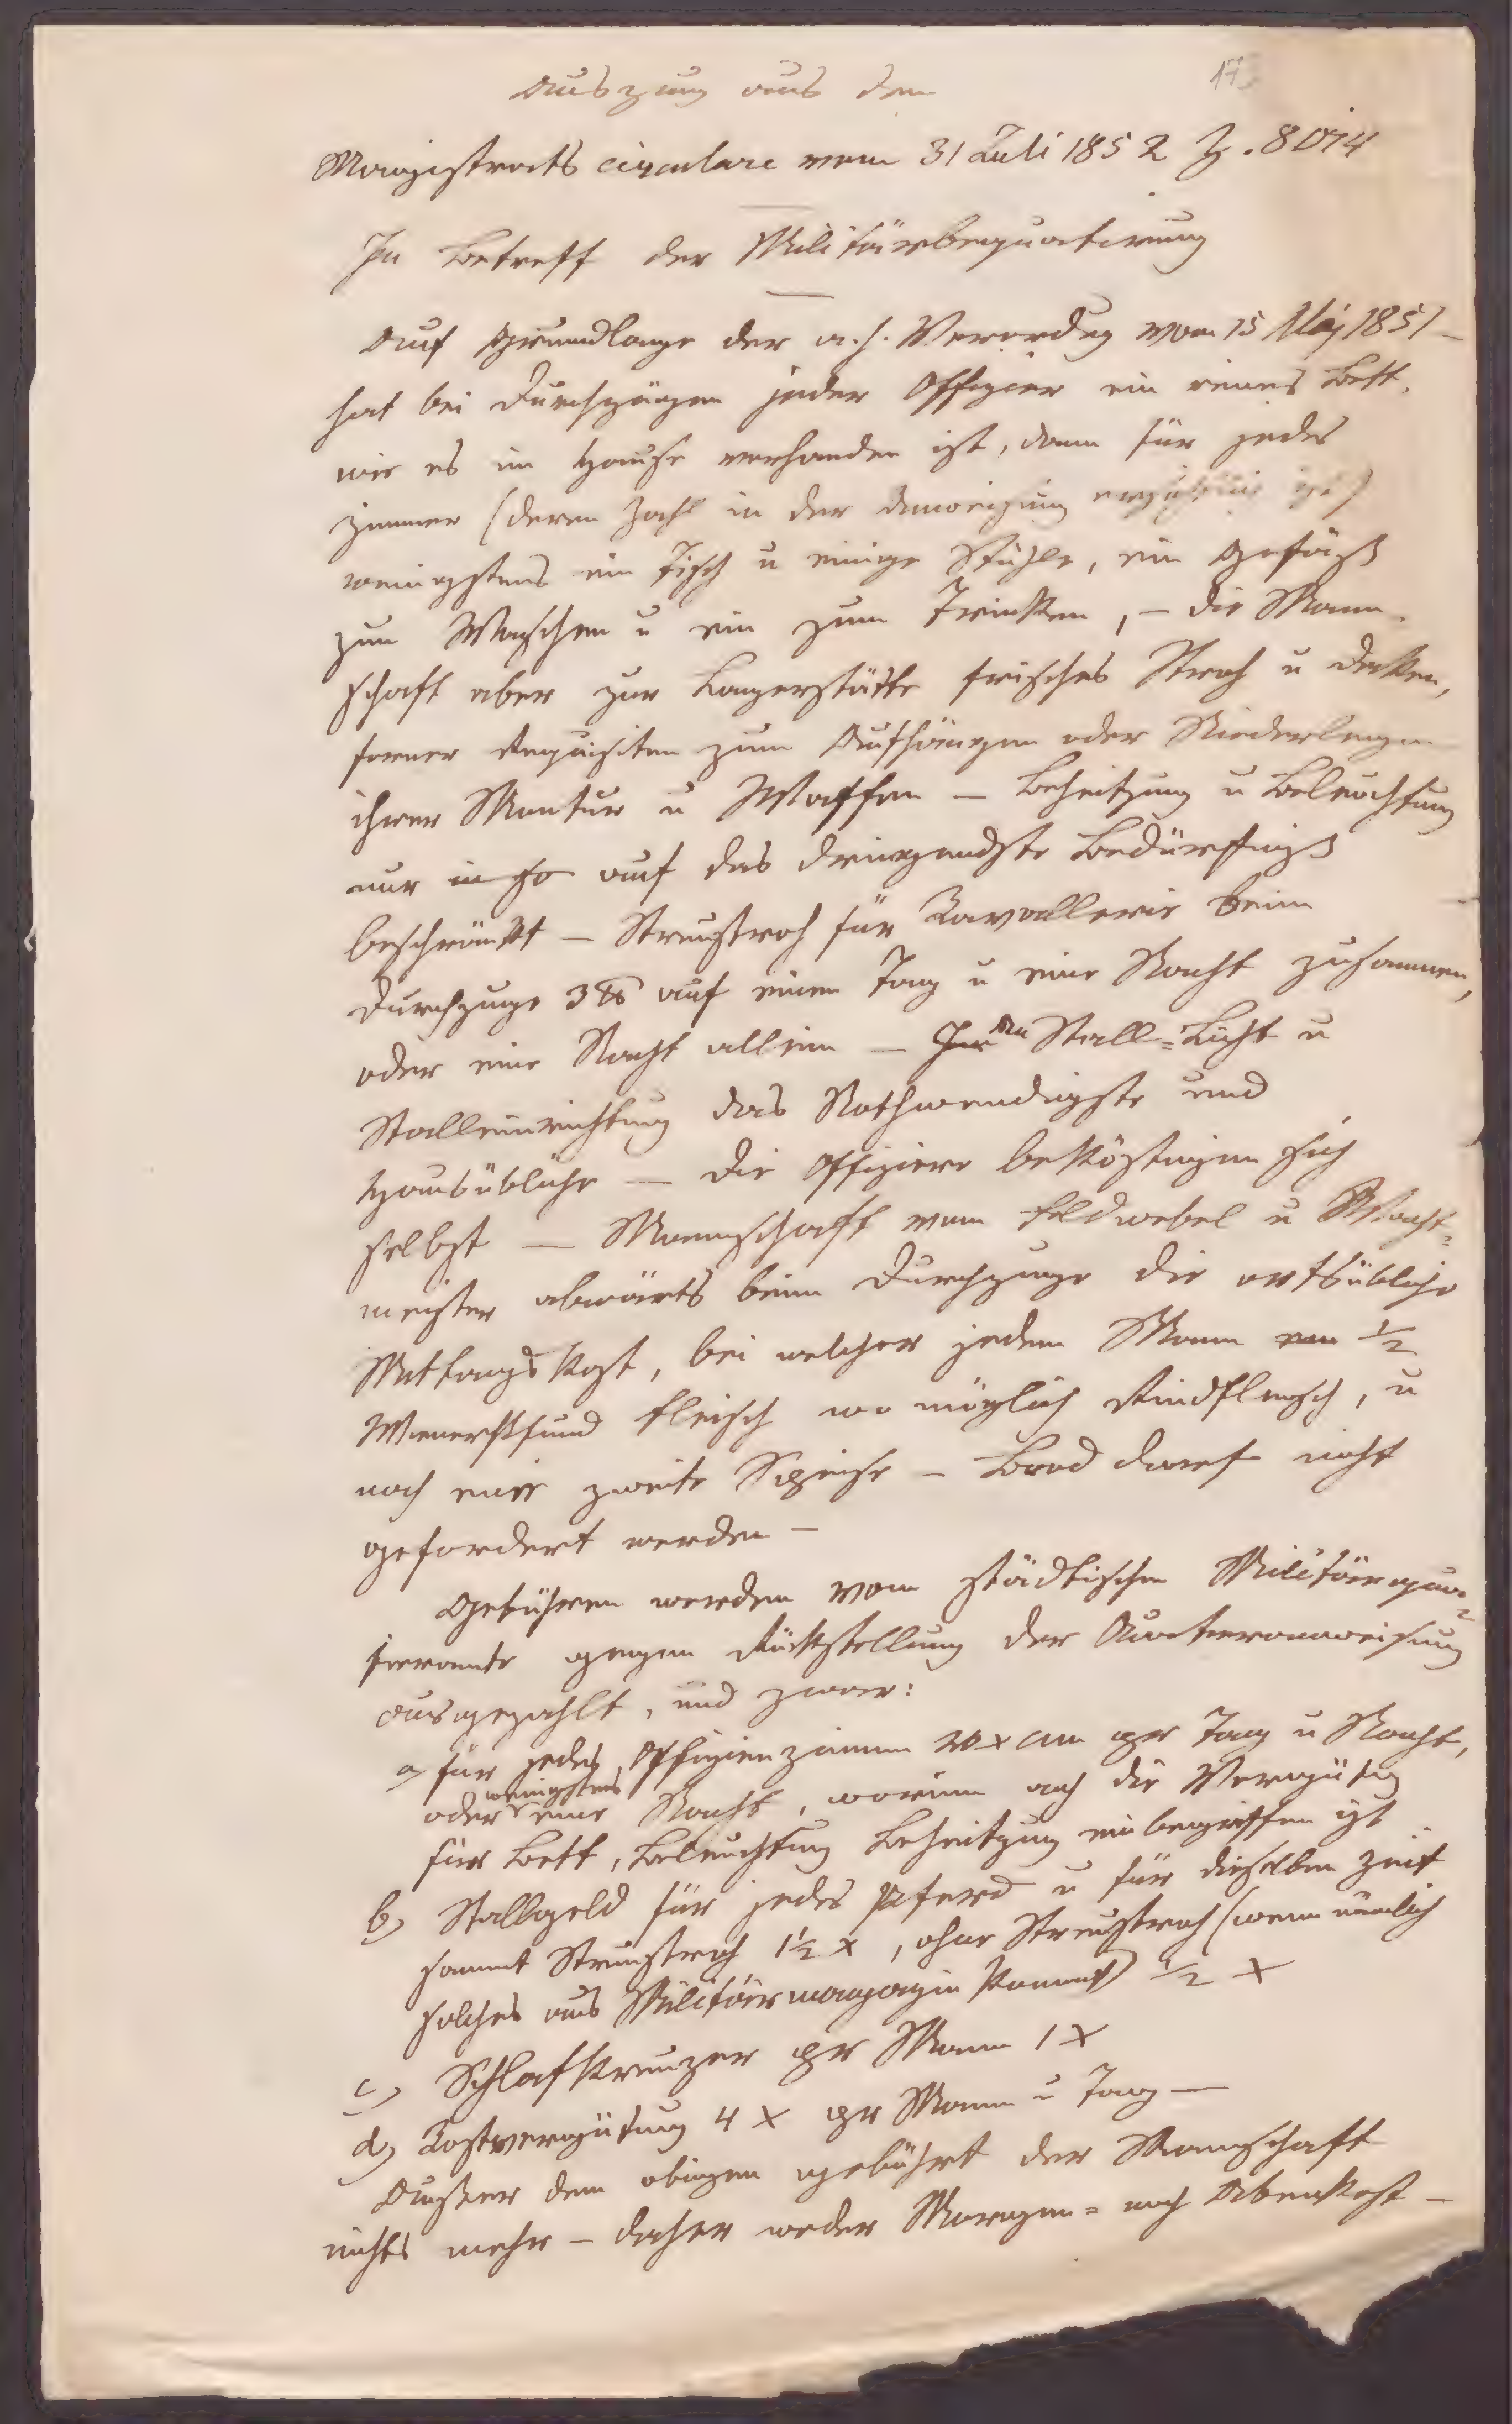 17
Auszug aus dem
Magistrats circulare vom 31 Juli 1852 Z. 8014
In Betreff der Militärbequartirung
Auf Grundlage der a. h. Verordug vom 15 Maj 1851 –
hat bei Durchzügen jeder Offizier ein reines Bett,
wie es im Hause vorhanden ist, dann für jedes
Zimmer (deren Zahl in der Anweisung ist)
wenigstens ein Tisch u einige Stühle, ein Gefäß
zum Waschen u ein zum Trinken, – die Mann-
schaft aber zur Lagerstätte frisches Stroh u Decken,
ferner Requisiten zum Aufhängen oder Niederlegen
ihrer Montur u Waffen – Beheitzung u Beleuchtung
nur in so auf das dringendste Bedürfniß
beschränkt – Streustroh für Kavallerie beim
Durchzuge 3 ℔ auf einen Tag u eine Nacht zusammen,
oder eine Nacht allein – Stall=Licht u
Stalleinrichtung das Nothwendigste und
Hausübliche – die Offiziere beköstigen sich
selbst – Mannschaft vom Feldwebel u Wacht=
meister abwärts beim Durchzuge die ortsübliche
Mittagskost, bei welcher jedem Mann 1/2
Wienerpfund Fleisch wo möglich Rindfleisch, u
noch eine zweite Speise – Brod darf nicht
gefordert werden –
Gebühren werden vom städtischen Militärquar=
tieramte gegen Rückstellung der Quartieranweisung
ausgezahlt, und zwar:
a) für jedes Offizierzimmer 20 x CM pr Tag u Nacht,
oder wenigstens eine Nacht, worinn auch die Vergütug
für Bett, Beleuchtung Beheitzung einbegriffen ist
b) Stallgeld für jedes Pferd u für dieselben Zeit
sammt Streustroh 1½ x, ohne Streustroh (wenn nämlich
solches aus Militärmagazin kommt) 1/2 x
c) Schlafkreuzer pr Mann 1 x
d) Kostvergütung 4 x pr Mann u Tag –
Außer dem obigen gebührt der Mannschaft
nichts mehr – daher weder Morgen= noch Abenkost –